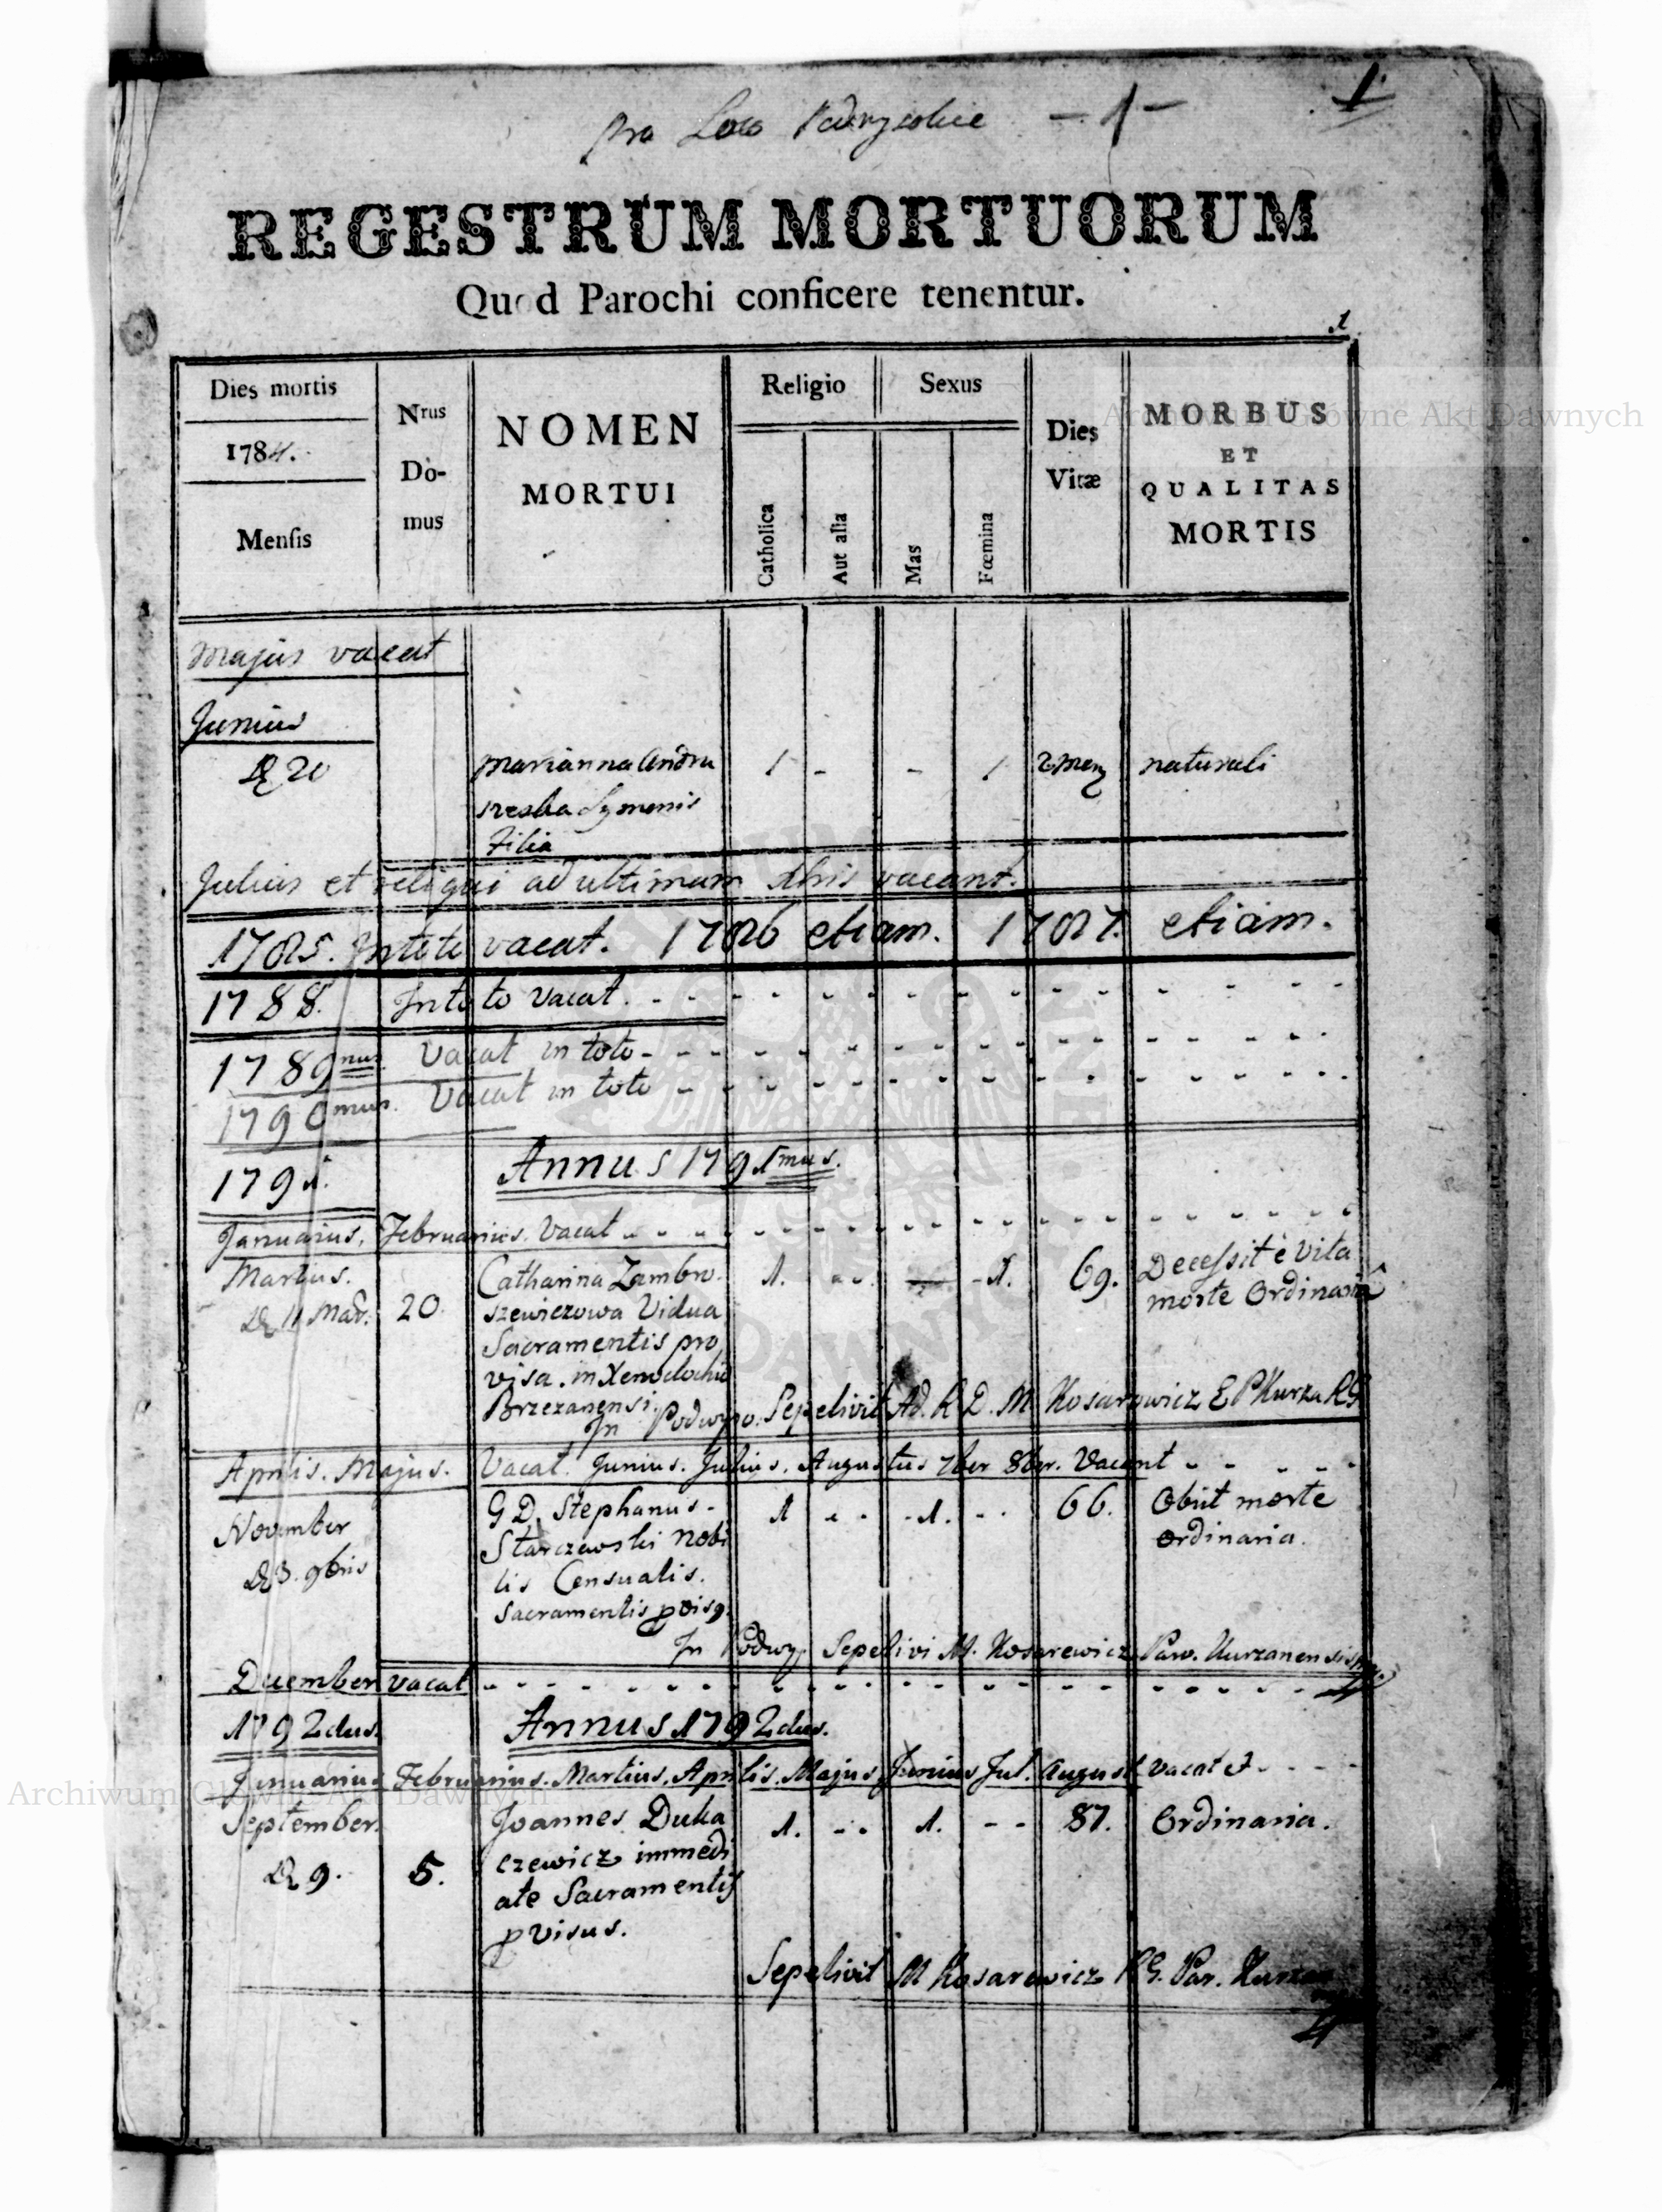 pro Loco Podwysokie - 1 -
1.
REGESTRUM MORTUORUM
Quod Parochi conficere tenentur.
1.
Dies mortis
1784.
Mensis
Nrus
Do-
mus
NOMEN
MORTUI
Religio
Catholica
Aut alia
Sexus
Mas
Fœmina
Dies
Vitæ
MORBUS
ET
QUALITAS
MORTIS
Majus vacat
Junius
20 Marianna Andru 1 - - 1 naturali
Symonis
Filia
Julius et reliqui ad ultimam Xbris vacant.
1785. In toto vacat. 1786 etiam. 1787. etiam.
1788. In toto vacat.
1789nus vacat in toto
1790mus. Vacat in toto
1791. Annus 1791mus.
Januarius. Februarius. Vacat
Martius. Catharina Zambro- 1. - - - 1. 69. Decessit è vita
11 Mar. 20 szewiczowa Vidua morte Ordinaria
Sacramentis pro
visa. in Xenodochio
Brzezanensi.
In Podwyso. Sepelivit Ad. R. D. M. Kosarowicz E P Kurza RG
Aprilis. Majus. Vacat. Junius. Julius. Augustus 7ber 8br. Vacant
November G D. Stephanus 1 - - 1. - - 66. Obiit morte
3. 9bris Starczewski Nobi ordinaria.
lis Censualis.
Sacramentis pvis9.
In Podwy Sepelivi M. Kosarewicz Par. Kurzanensis
December vacat
1792dus. Annus 1792dus.
Januarius Februarius. Martius. Aprilis. Majus Junius Jul. August vacat
September. Joannes Duka 1. - - 1. - - 87. Ordinaria.
9. 5. czewicz immedi
ate Sacramentis
pvisus.
Sepelivit M Kosarewicz RG. Par. Kurzan
Archiwum Główne Akt Dawnych
Archiwum Główne Akt Dawnych